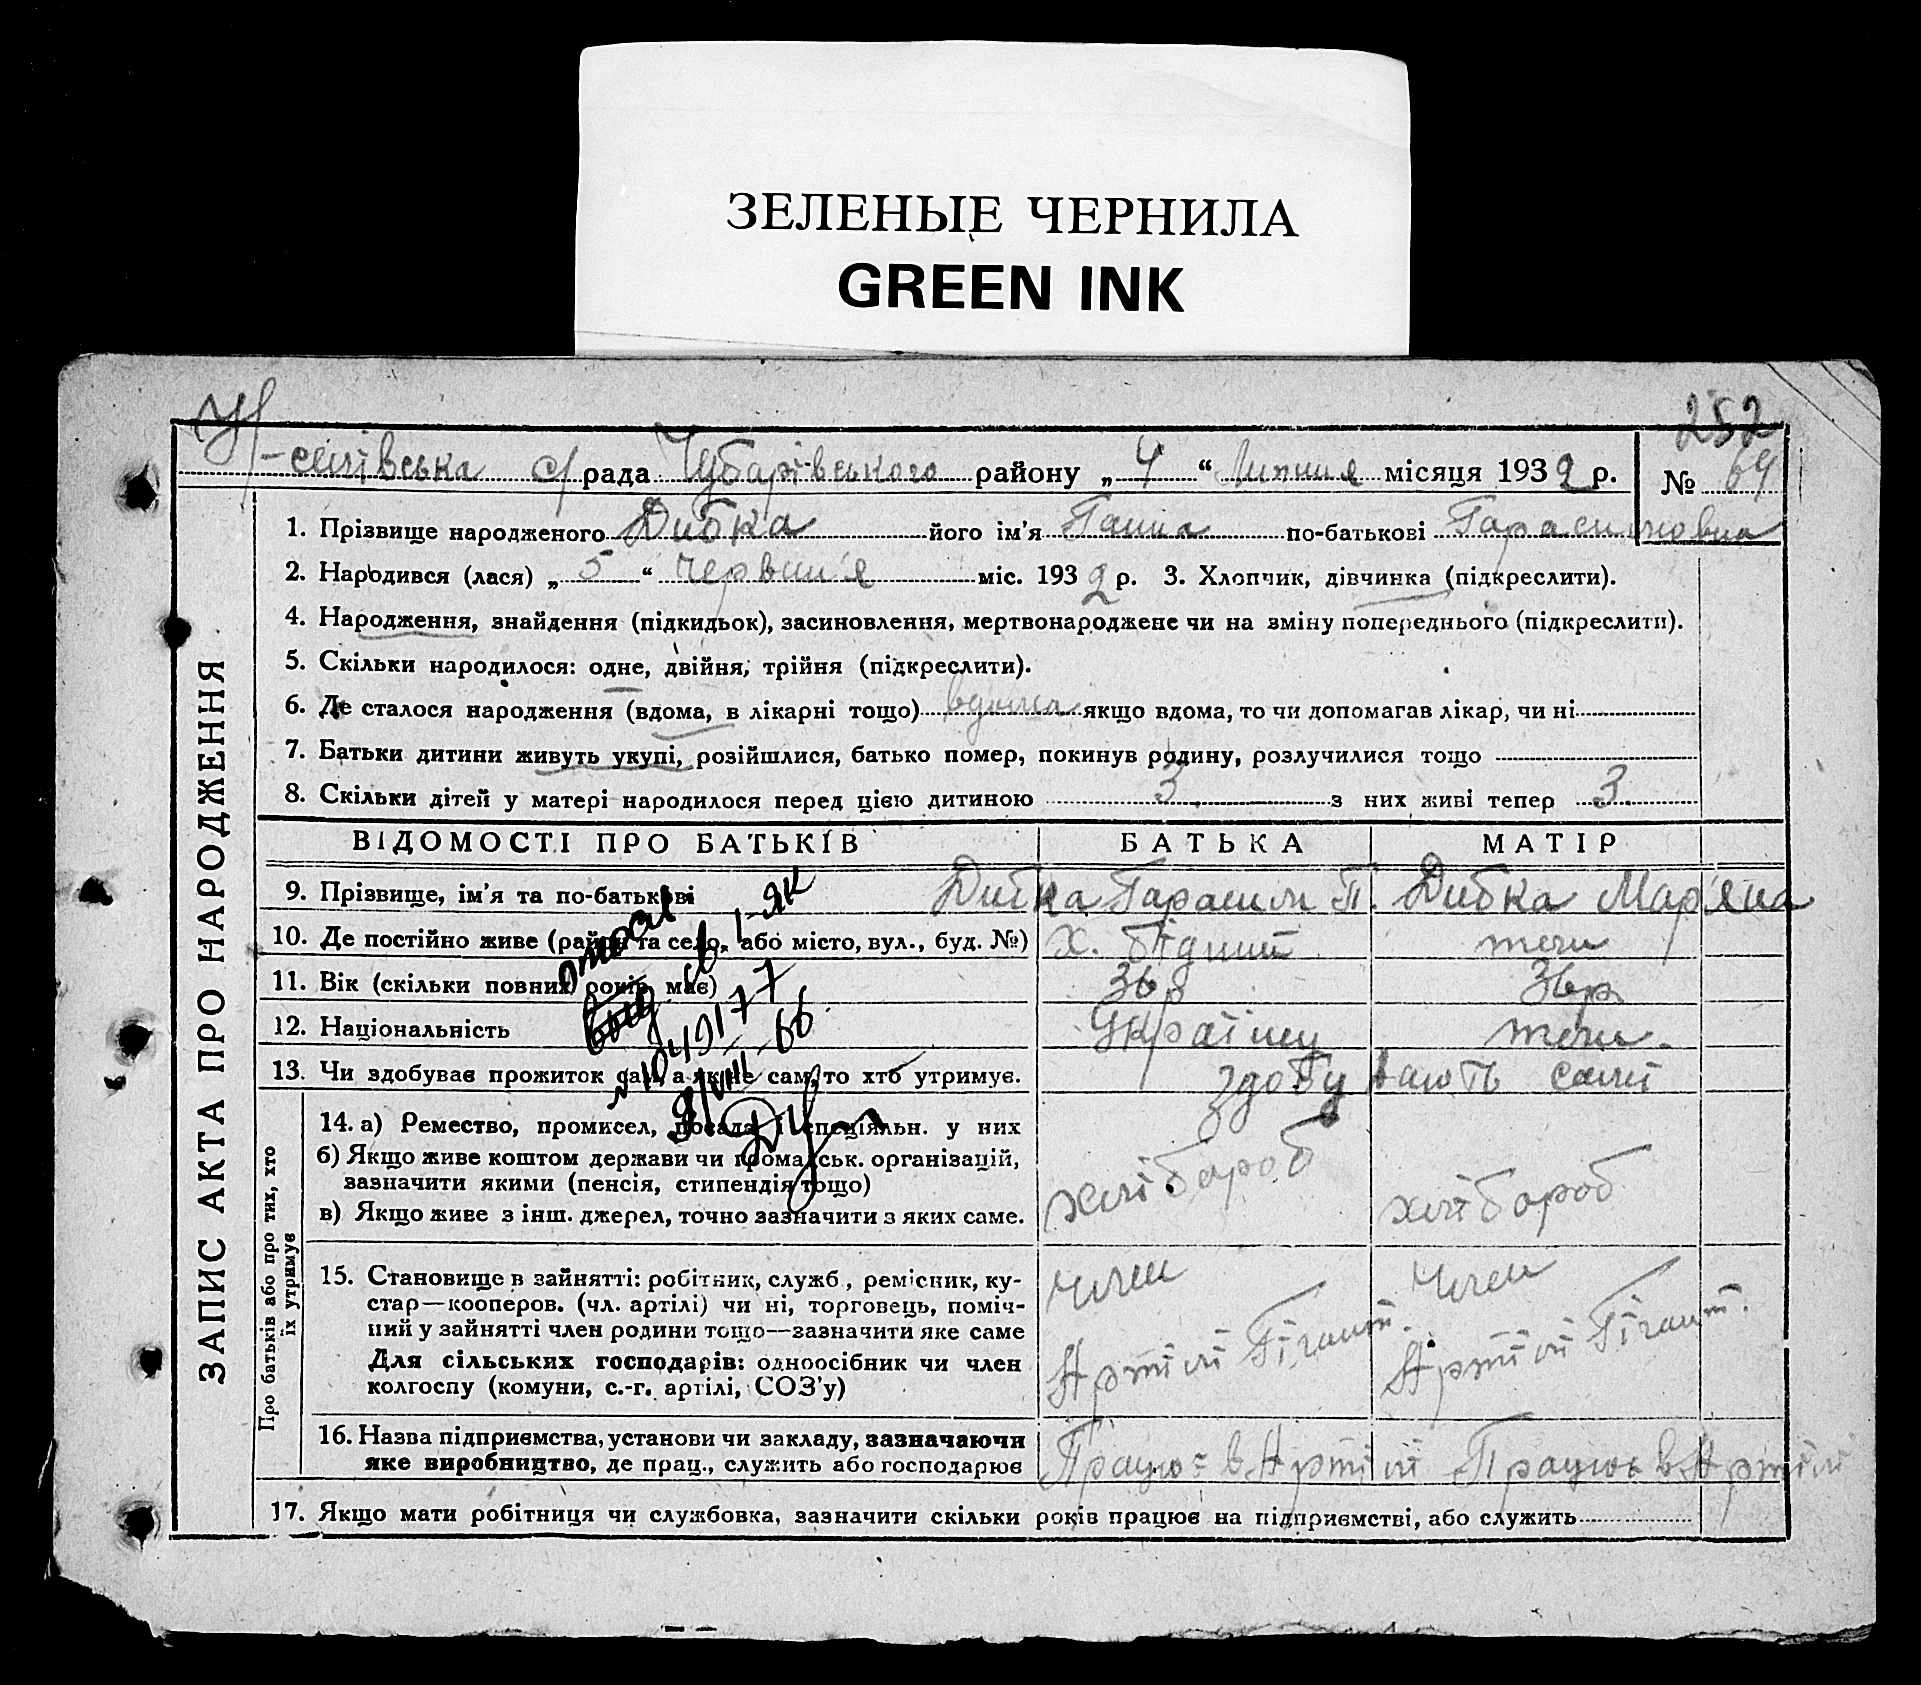 ЗЕЛЕНЫЕ ЧЕРНИЛА
GREEN INK
252
сільська с/рада Чубарівського району „ 4 “ Липня місяця 1932 р. № 64
1. Прізвище народженого Дибка його ім'я Ганна по-батькові Гарасимовна
2. Народився (лася) „ 5 “ Червня міс. 1932 р. 3. Хлопчик, дівчинка (підкреслити).
4. Народження, знайдення (підкидьок), засиновлення, мертвонароджене чи на зміну попереднього (підкреслити).
5. Скільки народилося: одне, двійня, трійня (підкреслити).
6. Де сталося народження (вдома, в лікарні тощо) вдома якщо вдома, то чи допомагав лікар, чи ні
7. Батьки дитини живуть укупі, розійшлися, батько помер, покинув родину, розлучилися тощо
8. Скільки дітей у матері народилося перед цією дитиною 3 з них живі тепер 3.
ЗАПИС АКТА ПРО НАРОДЖЕННЯ
ВІДОМОСТІ ПРО БАТЬКІВ БАТЬКА МАТІР
9. Прізвище, ім'я та по-батькові Дибка Гарасим П. Дибка Мар'яна
10. Де постійно живе (район та село, або місто, вул., буд. №) х. Бідний теж
11. Вік (скільки повних років має) 36 р 36 р
12. Національність Україну теж.
13. Чи здобував прожиток сам, а як не сам, то хто утримує. здобувають самі
Про батьків або про тих, хто
їх утримує
14. а) Ремество, промисел, посада і спеціяльн. у них
б) Якщо живе коштом держави чи громадськ. організацій,
зазначити якими (пенсія, стипендія тощо)
в) Якщо живе з інш. джерел, точно зазначити з яких саме.
хліботроб хліботроб
15. Становище в зайнятті: робітник, служб., ремісник, ку-
стар—кооперов. (чл. артілі) чи ні, торговець, поміч-
ний у зайнятті член родини тощо—зазначити яке саме
Для сільських господарів: одноосібник чи член
колгоспу (комуни, с.-г. артілі, СОЗ'у)
Член Член
Артілі Гігант. Артілі Гігант.
16. Назва підприємства, установи чи закладу, зазначаючи
яке виробництво, де прац., служить або господарює
Працює в Артілі Працює в Артілі
17. Якщо мати робітниця чи службовка, зазначити скільки років працює на підприємстві, або служить